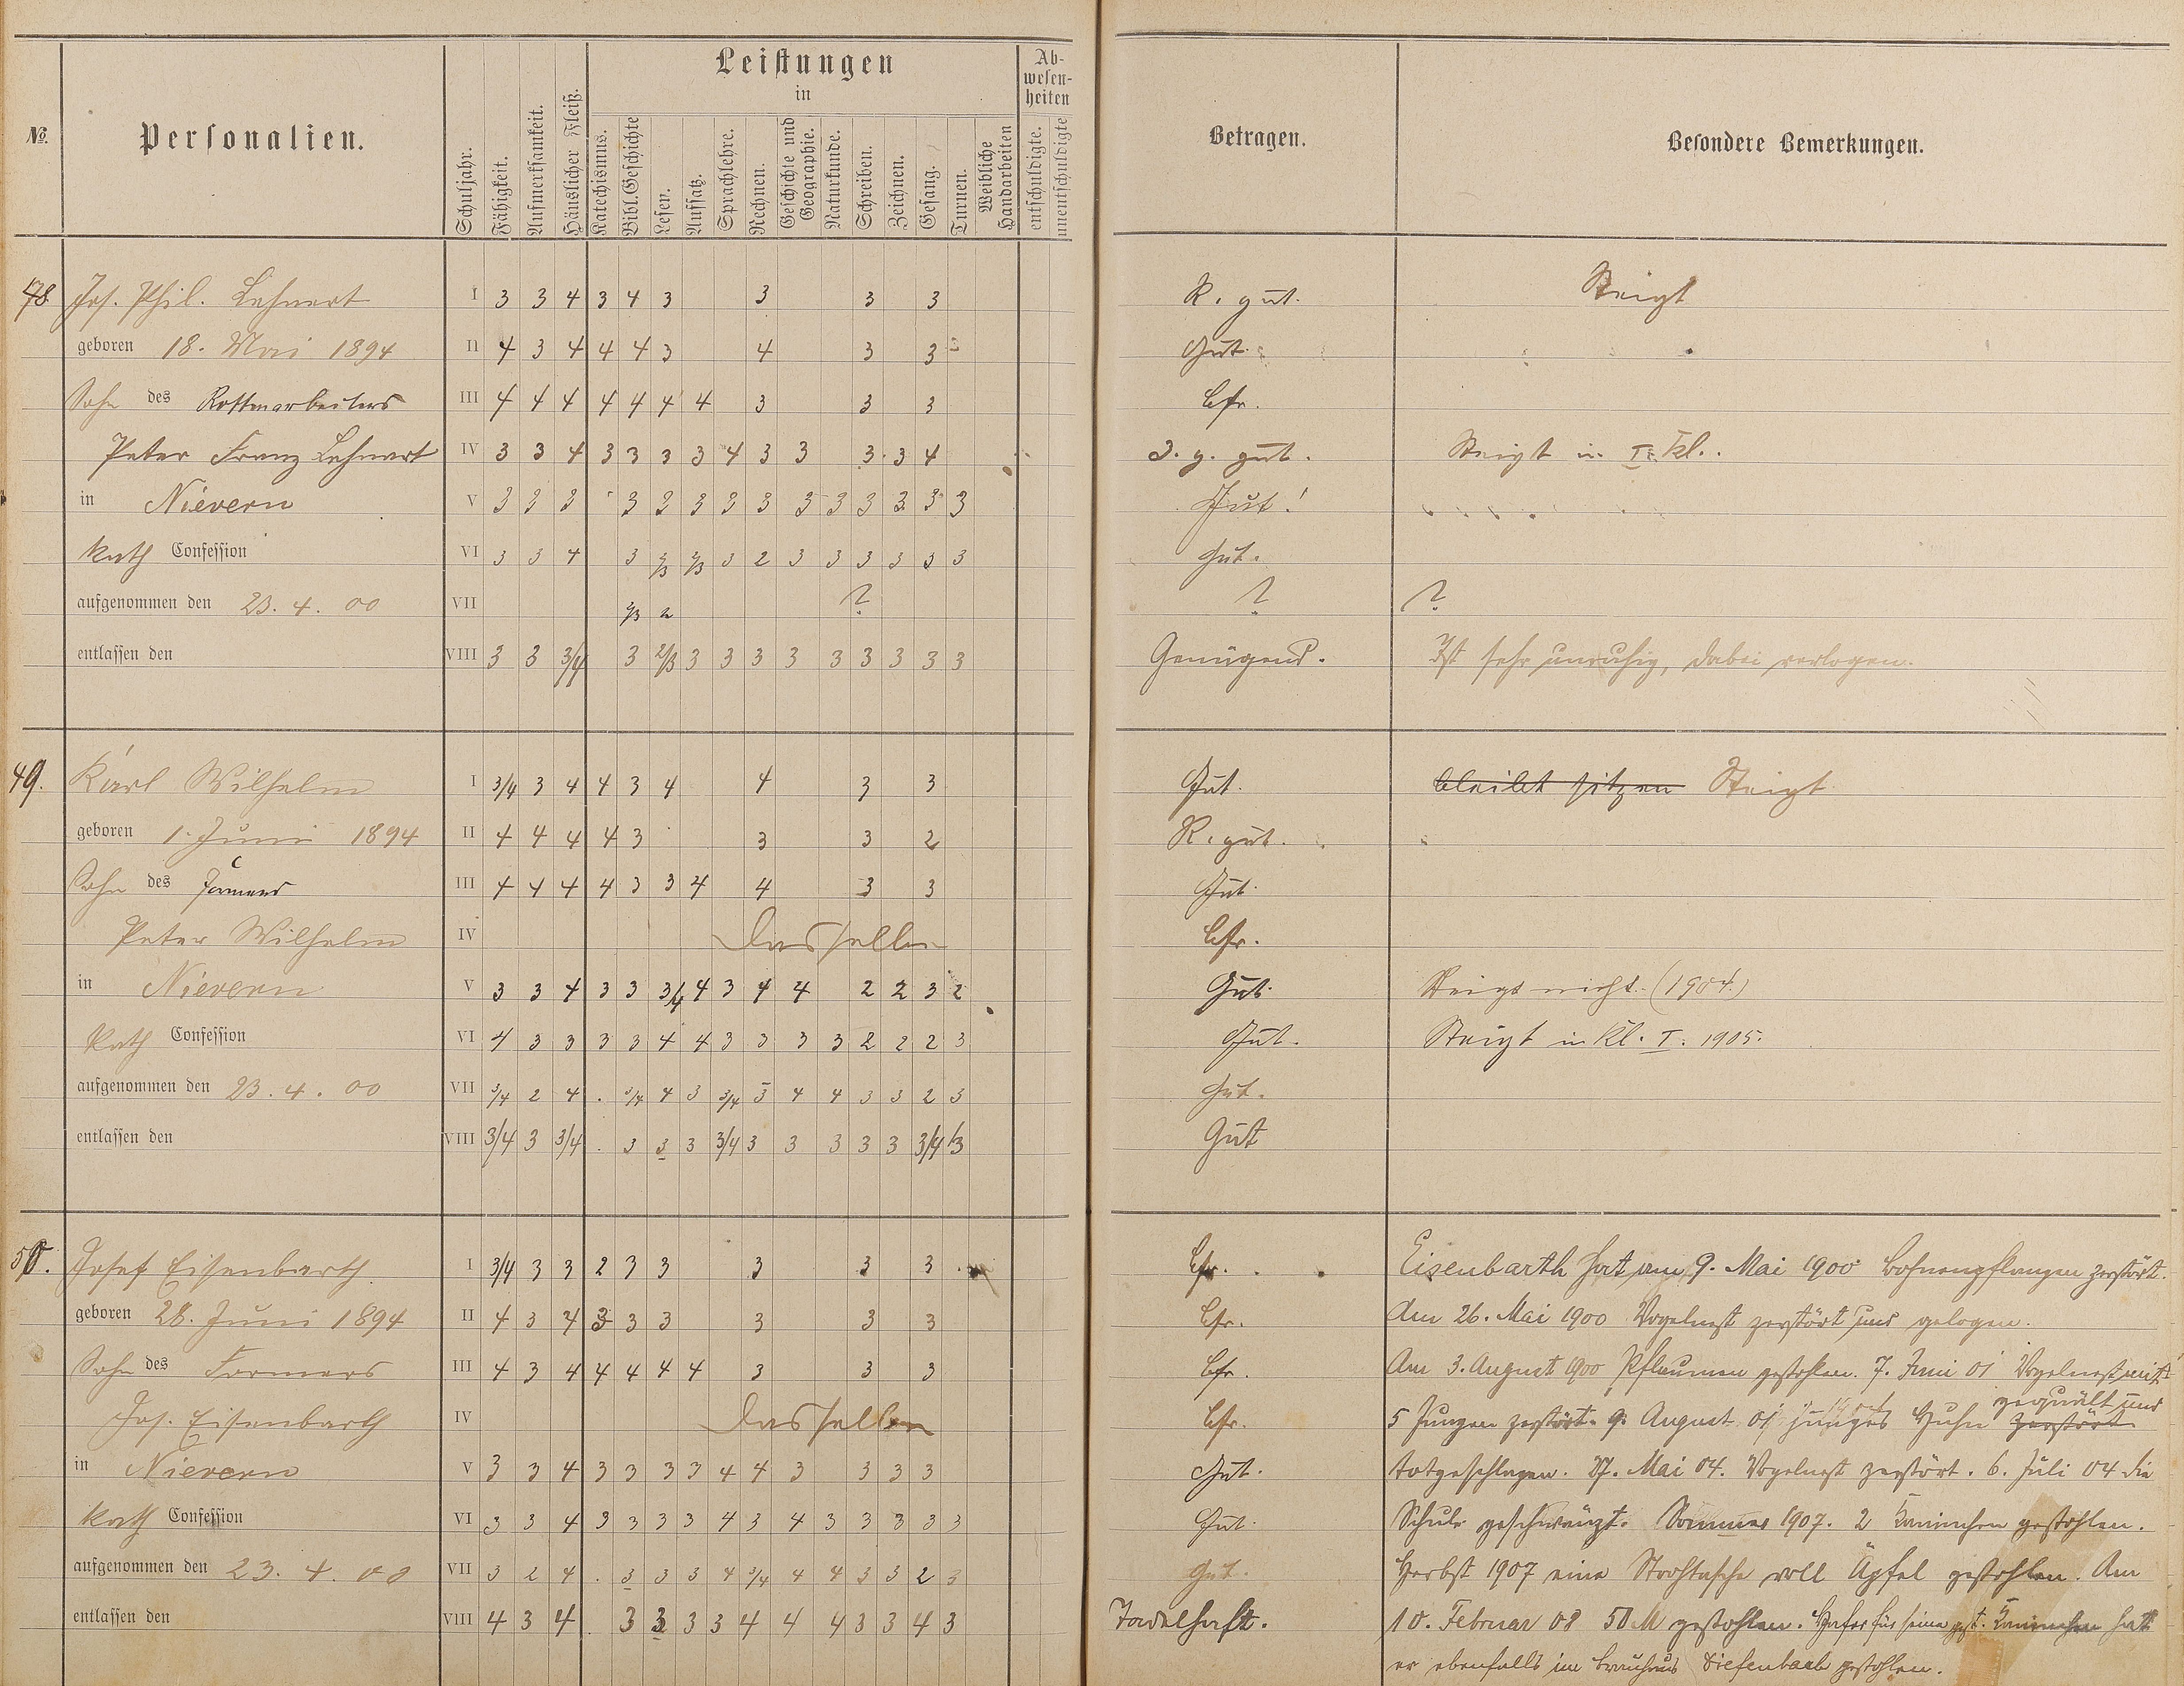 No. Personalien. Schuljahr. Fähigkeit. Aufmerksamkeit. Häuslicher Fleiß. Leistungen in Katechismus. Bibl. Geschichte Lesen. Aufsatz. Sprachlehre. Rechnen. Geschichte und Geographie. Naturkunde. Schreiben. Zeichnen. Gesang. Turnen. Weibliche Handarbeiten Ab-wesen-heiten entschuldigte. unentschuldigte Betragen. Besondere Bemerkungen.
48 Jos. Phil. Lehnert I 3 3 4 3 4 3 3 3 3 R. gut. Steigt
geboren 18. Mai 1894 II 4 3 4 4 4 3 4 3 3 Gut.
Sohn des Rottenarbeiters III 4 4 4 4 4 4 4 3 3 3 Bfr.
Peter Franz Lehnert IV 3 3 4 3 3 3 3 4 3 3 3 3 4 Z. g. gut. Steigt in I. Kl.
in Nievern V 3 3 3 3 2 3 3 3 3 3 3 3 3 3 Gut!
Kath Confession VI 3 3 4 3 2/3 2/3 3 2 3 3 3 3 3 3 Gut.
aufgenommen den 23. 4. 00 VII 2/3 2 ? ? ?
entlassen den VIII 3 3 3/4 3 2/3 3 3 3 3 3 3 3 3 3 Genügend. Ist sehr unruhig, dabei verlogen.
49. Karl Wilhelm I 3/4 3 4 4 3 4 4 3 3 Gut. bleibt sitzen Steigt
geboren 1. Juni 1894 II 4 4 4 4 3 3 3 2 R. gut.
Sohn des Formers III 4 4 4 4 3 3 4 4 3 3 Gut.
Peter Wilhelm IV Dasselbe Bfr.
in Nievern V 3 3 4 3 3 3/4 4 3 4 4 2 2 3 2 Gut. Steigt nicht. (1904.)
Kath Confession VI 4 3 3 3 3 4 4 3 3 3 3 2 2 2 3 Gut. Steigt in Kl. I. 1905.
aufgenommen den 23. 4. 00 VII 3/4 2 4 . 3/4 4 3 3/4 3 4 4 3 3 2 3 Gut.
entlassen den VIII 3/4 3 3/4 . 3 3 3 3/4 3 3 3 3 3 3/4 3 Gut
50. Josef Eisenbarth I 3/4 3 3 2 3 3 3 3 3 Bfr. Eisenbarth hat am 9. Mai 1900 Bohnenpflanzen zerstört.
geboren 28. Juni 1894 II 4 3 4 3 3 3 3 3 3 Bfr. Am 26. Mai 1900 Vogelnest zerstört und gelogen.
Sohn des Formers III 4 3 4 4 4 4 4 3 3 3 Bfr. Am 3. August 1900 Pflaumen gestohlen. 7. Juni 01 Vogelnest mit
Jos. Eisenbarth IV Dasselbe Bfr. 5 Jungen zerstört. 9. August 01 junges Huhn zerstört gequält und
in Nievern V 3 3 4 3 3 3 3 4 4 3 3 3 3 Gut. totgeschlagen. 27. Mai 04. Vogelnest zerstört. 6. Juli 04 die
Kath Confession VI 3 3 4 3 3 3 3 4 3 4 3 3 3 3 3 Gut. Schule geschwänzt. Sommer 1907. 2 Kaninchen gestohlen.
aufgenommen den 23. 4. 00 VII 3 2 4 . 3 3 3 4 3/4 4 4 3 3 2 3 Gut. Herbst 1907 eine Strohtasche voll Äpfel gestohlen. Am
entlassen den VIII 4 3 4 . 3 3 3 3 4 4 4 3 3 4 3 Tadelhaft. 10. Februar 08 50 M gestohlen. Hafer für seine gest. Kaninchen hat
er ebenfalls im Brauhaus Diefenbach gestohlen.